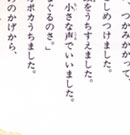 、つかみかかって、
じめつけました。
をうちすえました。
小さな声でいいました。
なぐるのさ。」
ポカうちました。
のかげから、